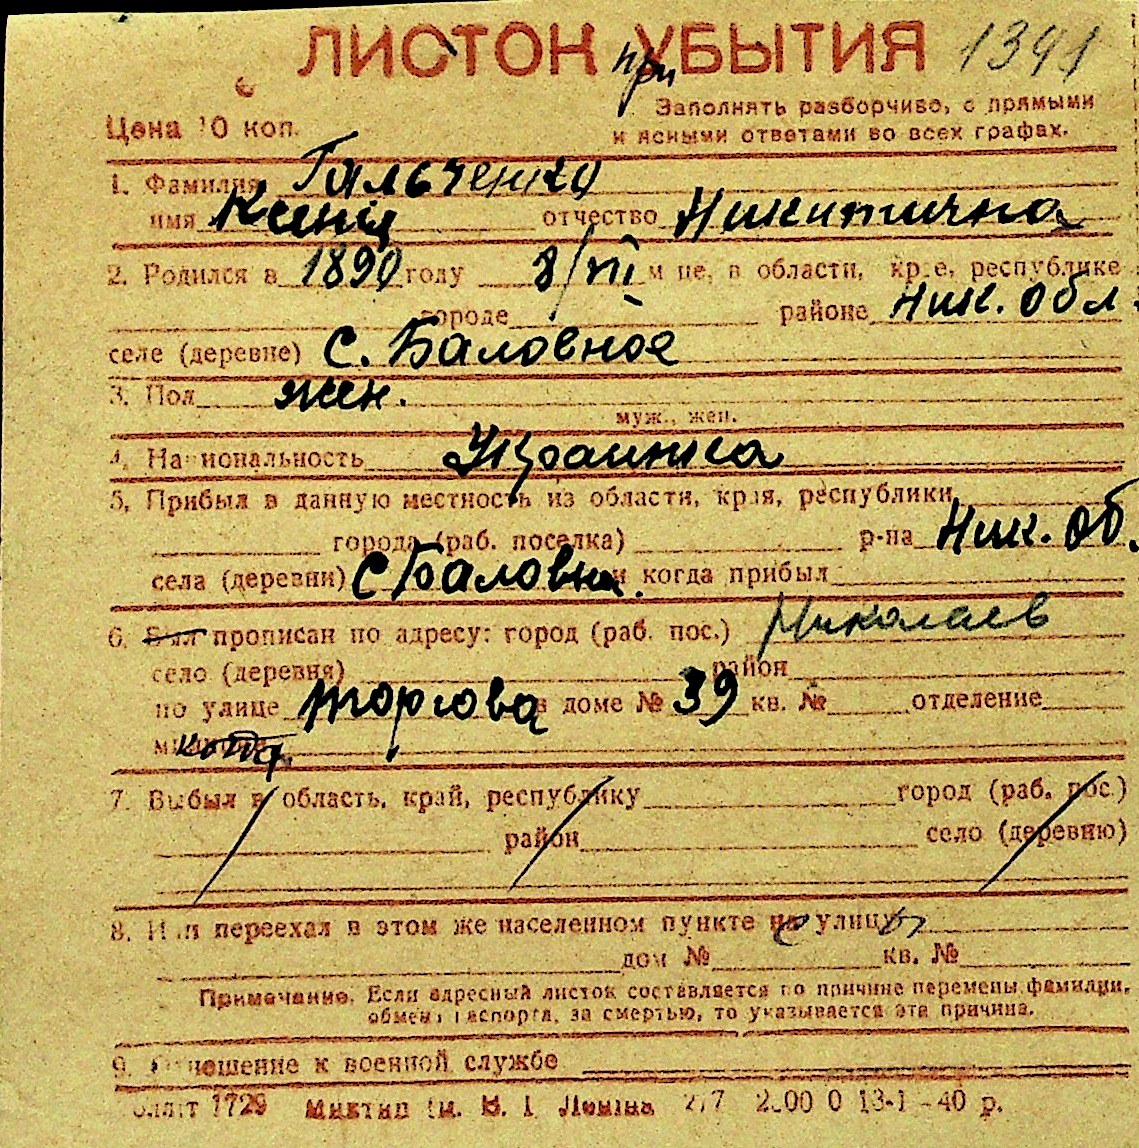 ЛИСТОК УБЫТИЯ 1341
при
Заполнять разборчиво, с прямыми
Цена 10 коп.
и ясными ответами во всех графах.
1. Фамилия Гальченко
имя Ксения отчество Никитична
2. Родился в 1890 году 8/VII м це, в области, крае, республике
городе районе Ник. обл
селе (деревне) с. Баловное
3. Пол жен.
муж., жен.
4. Национальность Украинка
5. Прибыл в данную местность из области, края, республики
города (раб. поселка) р-на Ник. об.
села (деревни) с Баловна. и когда прибыл
6. Был прописан по адресу: город (раб. пос.) Николаев
село (деревня) район
по улице торгова в доме № 39 кв. № отделение
милиции
7. Выбыл в область, край, республику город (раб. пос.)
район село (деревню)
8. Или переехал в этом же населенном пункте на улицу
дом № кв. №
Примечание. Если адресный листок составляется по причине перемены фамилии,
обмена паспорта, за смертью, то указывается эта причина.
9. Отношение к военной службе
1729 им. В. И. Ленина 40 р.